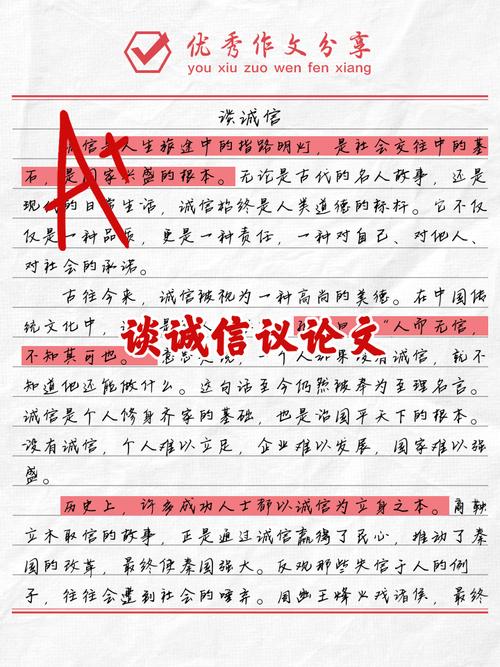 优秀作文分享
you xiu zuo wen fen xiang
谈诚信
A+
信 人生旅途中的指路明灯，是社会交往中的基
石，是国家兴盛的根本。无论是古代的名人故事，还是
现代的日常生活，诚信始终是人类道德的标杆。它不仅
仅是一种品质，更是一种责任，一种对自己、对他人、
对社会的承诺。
古往今来，诚信被视为一种高尚的美德。在中国传
统文化中， 人 曰 “人而无信，
谈诚信议论文
不知其可也。 一个人 没有诚信，就不
知道他还能做什么。这句话至今仍然被奉为至理名言。
诚信是个人修身齐家的基础，也是治国平天下的根本。
没有诚信，个人难以立足，企业难以发展，国家难以强
盛。
历史上，许多成功人士都以诚信为立身之本。商鞅
立木取信的故事，正是通过诚信赢得了民心，推动了秦
国的改革，最终使秦国强大。反观那些失信于人的例
子，往往会遭到社会的唾弃。周幽王烽火戏诸侯，最终